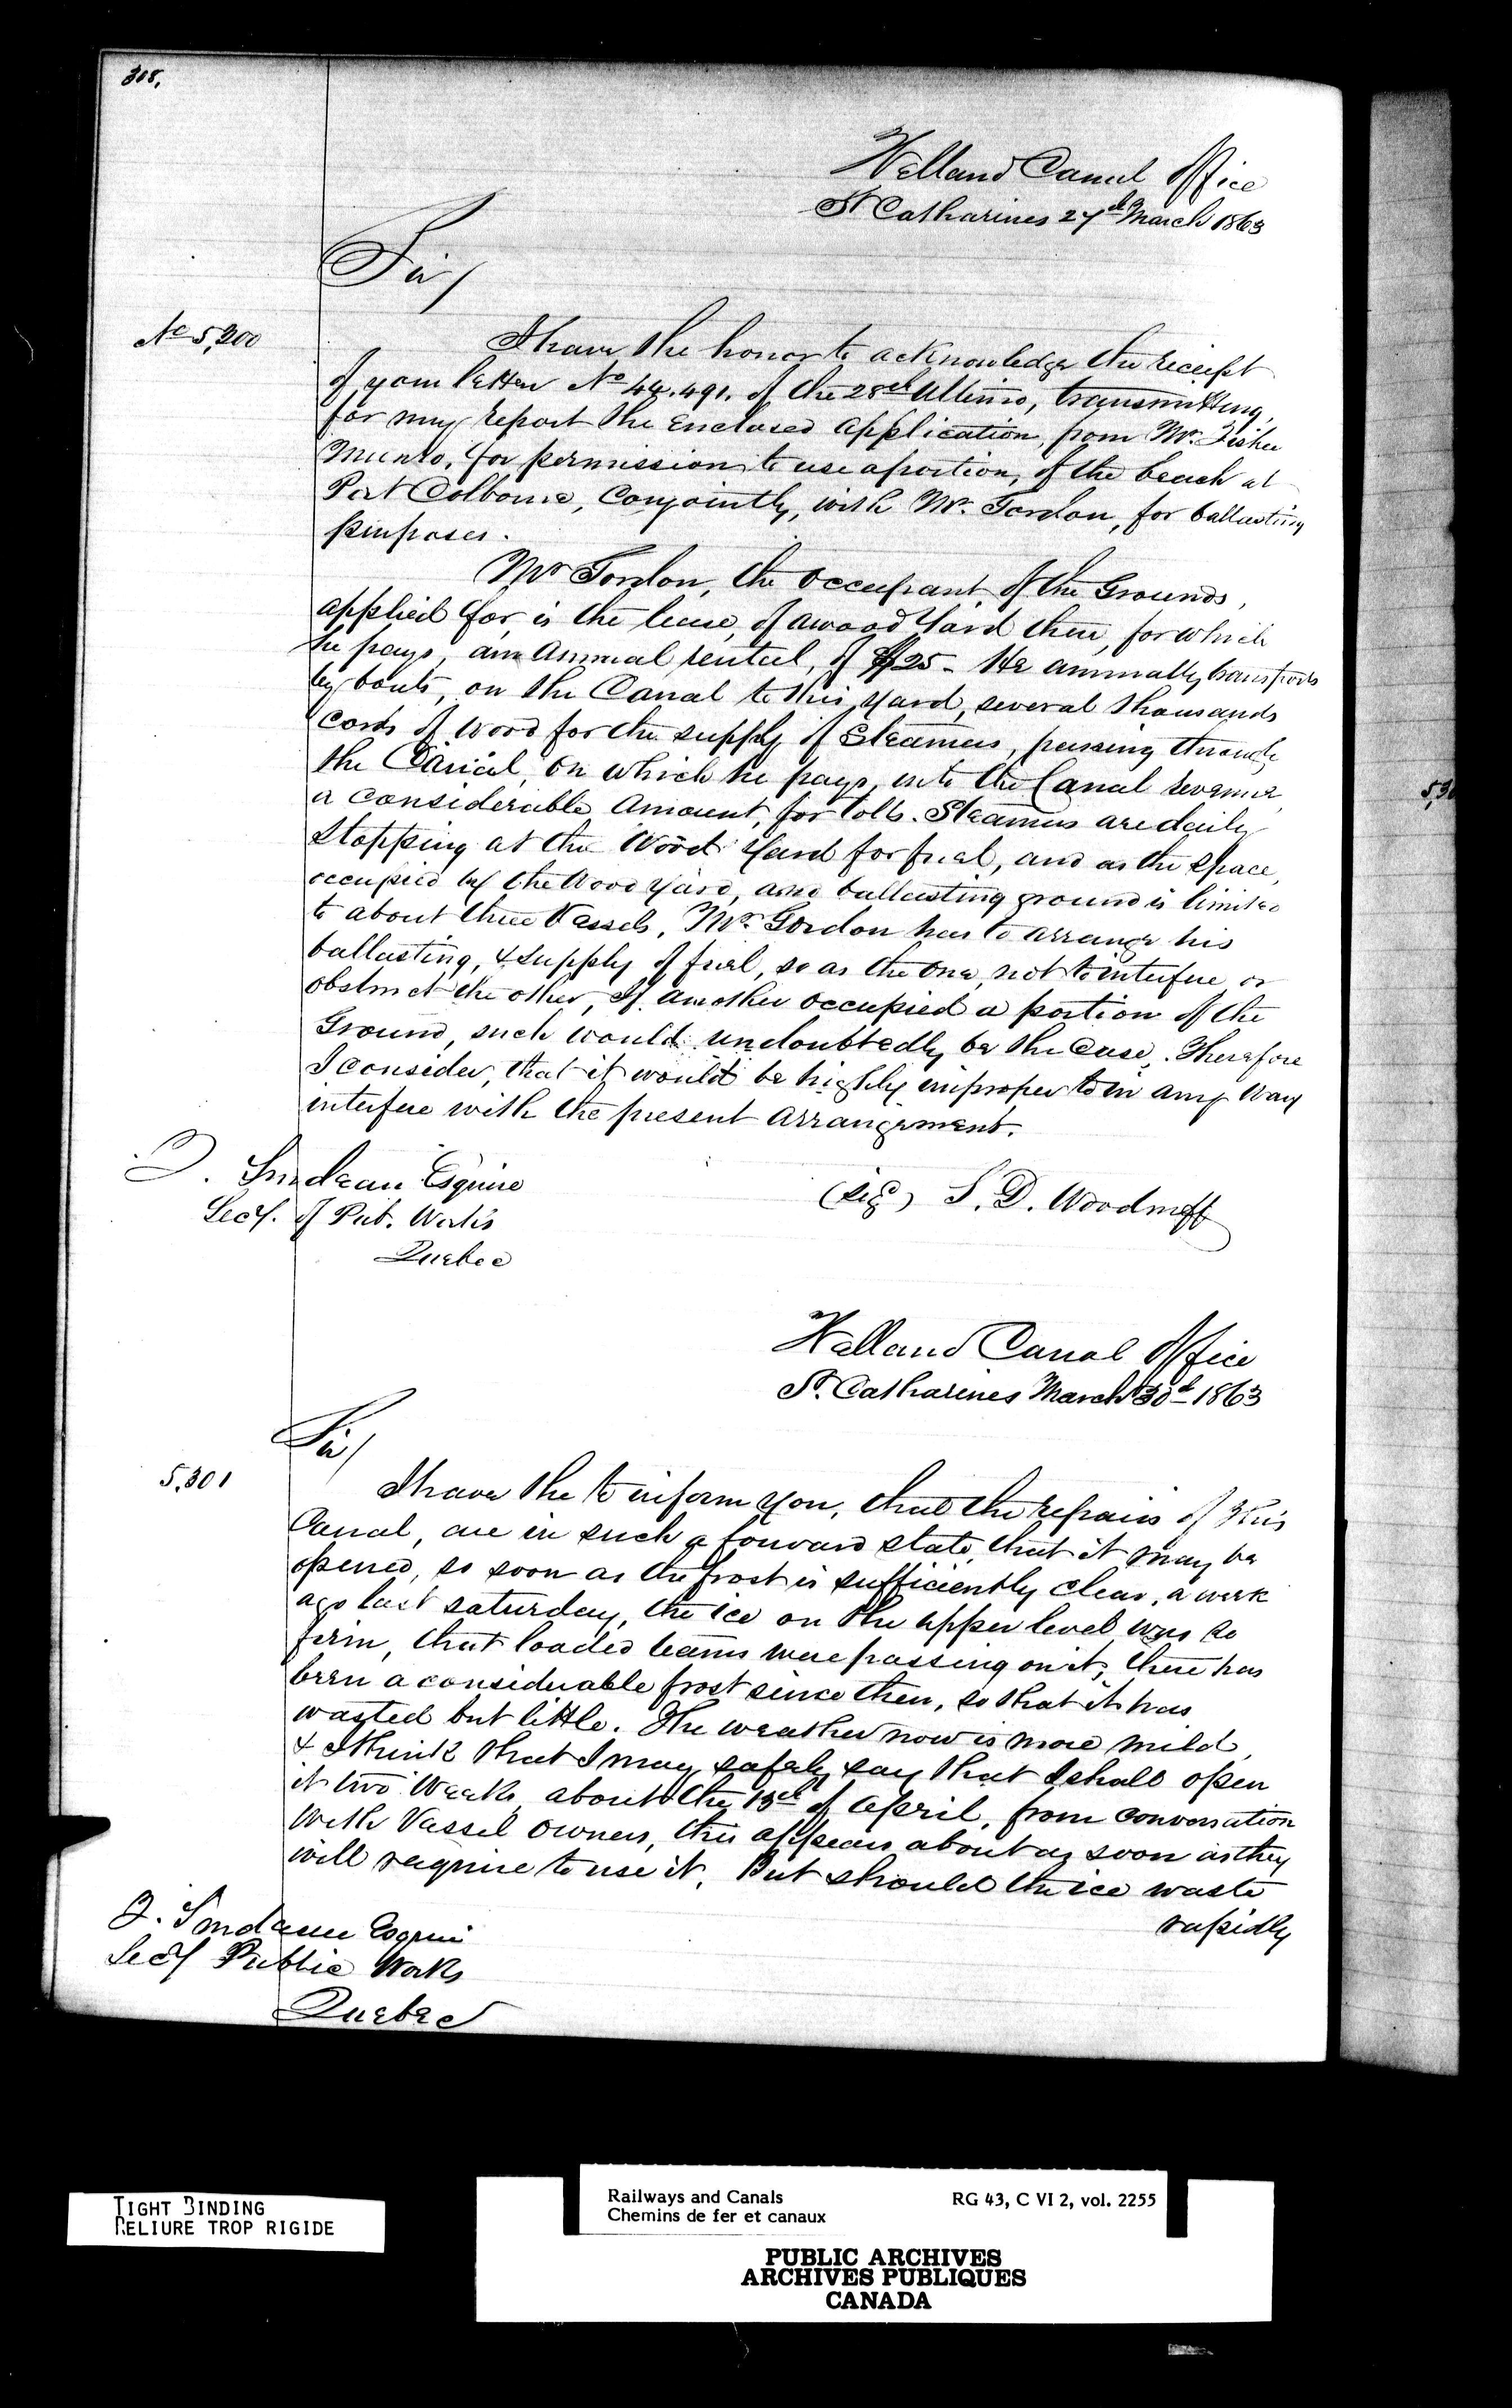 308,
Welland Canal Office
St Catharines 27th March 1863
Sir/
No 5,200
I have the honor to acknowledge the receipt
of your letter No 44.491. of the 28th Ultimo, transmitting,
for my report the Enclosed application, from Mr. Fisher
Munro, for permission to use a portion, of the beach at
Port Colborne, Conjointly, with Mr. Gordon, for ballasting
purposes.
Mr Gordon, the occupant of the Grounds,
applied for, is the lease, of a wood Yard there, for which
he pays, an Annual rental, of $25 - He annually transports
by boats, on the Canal to this yard, several thousands
Cords of wood for the supply of Steamers, passing through
the Canal, on which he pays, into the Canal revenue,
a Considerable Amount, for tolls. Steamers are daily
stopping at the Wood Yard for fuel, and as the space,
occupied by the Wood Yard, and ballasting ground is limited
to about three Vessels, Mr Gordon has to arrange his
ballasting, & supply of fuel, so as the one, not to interfere or
obstruct the other, If another occupied a portion of the
Ground, such would undoubtedly be the Case. Therefore
I consider, that it would be highly improper to in any way
interfere with the present arrangement.
(sigd) S. D. Woodruff
T. Trudeau Esquire
Secy. of Pub. Works
Quebec
Welland Canal Office
St. Catharines March 30th 1863
Sir/
5,301
I have the to inform you, that the repairs of this
Canal, are in such a forward state, that it may be
opened, so soon as the frost is sufficiently clear, a week
ago last saturday, the ice on the upper level was so
firm, that loaded teams were passing on it, there has
been a considerable frost since then, so that it has
wasted but little. The weather now is more mild,
& I think that I may safely say that I shall open
it two weeks, about the 13th of April, from Conversation
with Vessel owners, this appears about as soon as they
will require to use it. But should the ice waste
rapidly
T. Trudeau Esquire
Secy Public Works
Quebec
5,30
TIGHT BINDING
RELIURE TROP RIGIDE
Railways and Canals RG 43, C VI 2, vol. 2255
Chemins de fer et canaux
PUBLIC ARCHIVES
ARCHIVES PUBLIQUES
CANADA